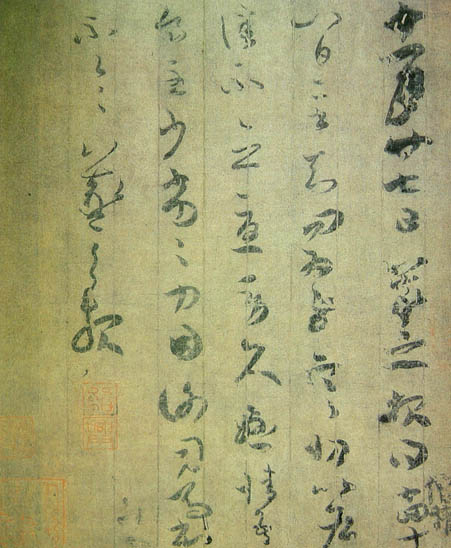 十一月廿七日羲之報得十
八日二書知問為慰寒切比各佳
不念憂勞久懸情吾
食至少劣劣力因謝司馬書
不一一羲之報